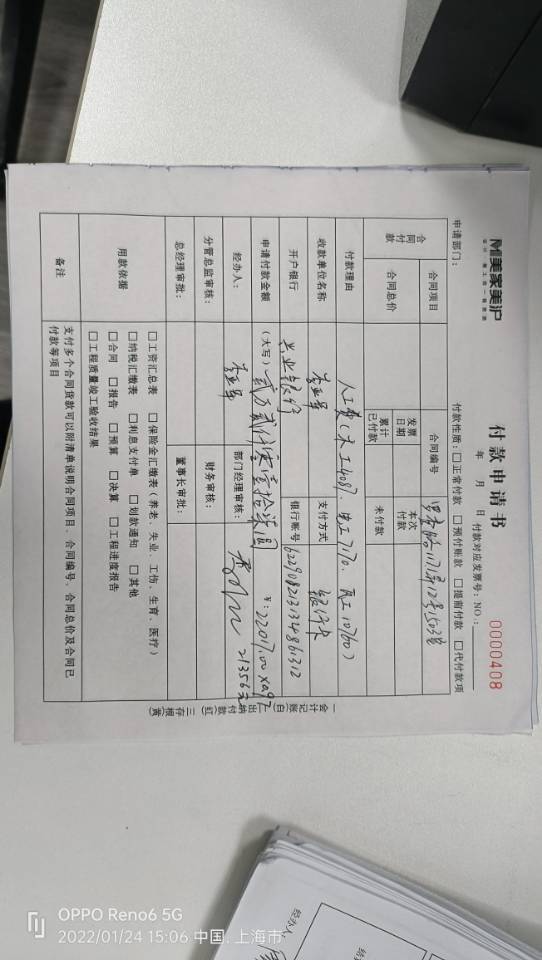 美家美沪
付款申请书
0000408
年 月 日 付款对应发票号：NO.：
申请部门： 付款性质：□正常付款 □预付账款 □提前付款 □代付款项
合同付款 合同项目 合同编号 1171弄12号1503室
合同总价 发票日期 本次付款
累计已付款 未付款
付款理由 人工费（木工4087、电工7170、瓦工10760）
收款单位名称 李亚军 支付方式 银行卡
开户银行 兴业银行 银行帐号 622908213134861312
申请付款金额 （大写）贰万贰仟零壹拾柒圆 ￥：22017.00×0.97
21356元
经办人： 李亚军 部门经理审核：
分管总监审核： 财务审核：
总经理审批： 董事长审批：
用款依据 □工资汇总表 □保险金汇缴表（养老、失业、工伤、生育、医疗）
□纳税汇缴表 □利息支付单 □划款通知 □其他
□合同 □报告 □预算 □决算 □工程进度报告
□工程质量竣工验收结果
备注 支付多个合同贷款可以附清单说明合同项目、合同编号、合同总价及合同已
付款等项目
一会计记账（白） 二出纳付款（红） 三存根（黄）
经办人
OPPO Reno6 5G
2022/01/24 15:06 中国, 上海市